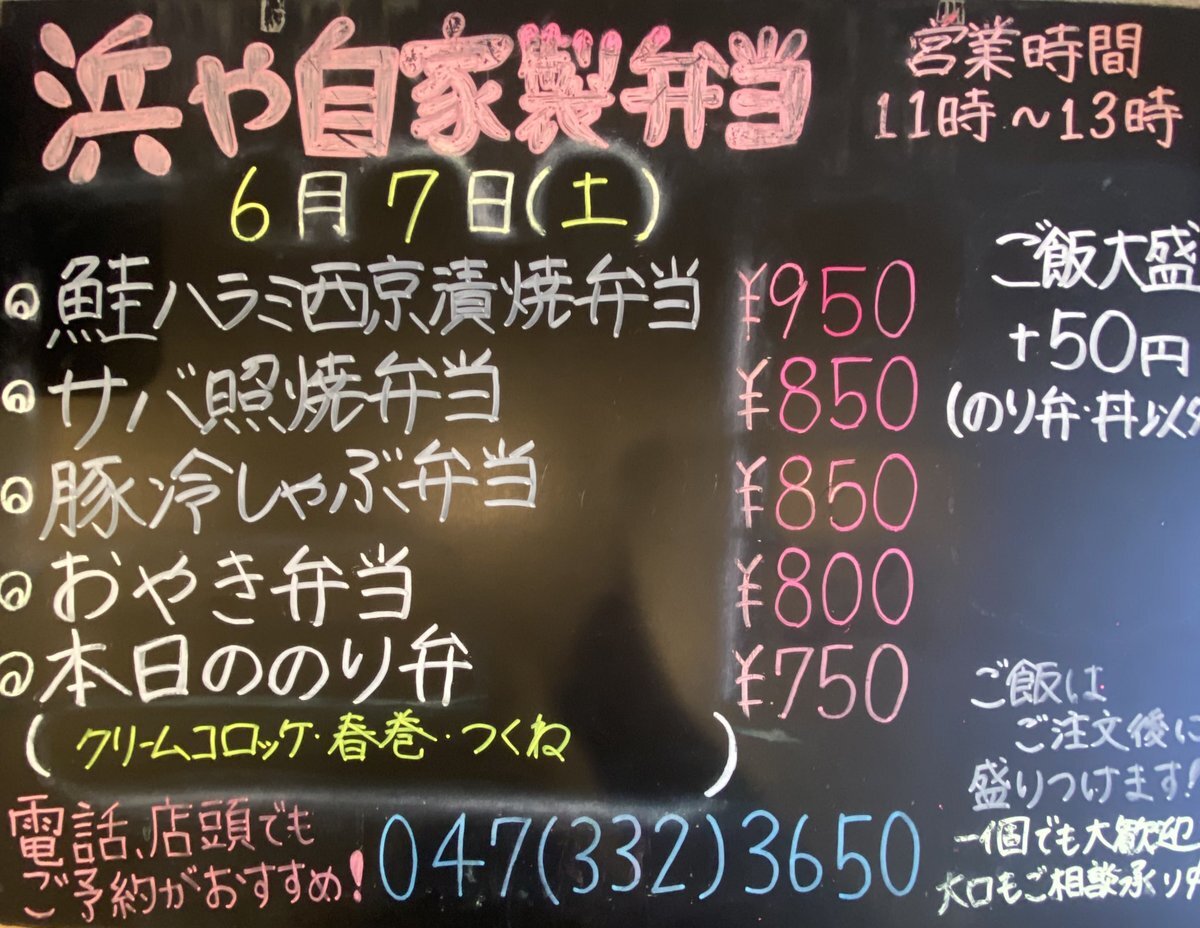 浜や自家製弁当
営業時間
11時～13時
6月7日(土)
鮭ハラミ西京漬焼弁当 ¥950
サバ照焼弁当 ¥850
豚冷しゃぶ弁当 ¥850
おやき弁当 ¥800
本日ののり弁 ¥750
(クリームコロッケ・春巻・つくね)
ご飯大盛
+50円
(のり弁・丼以外
ご飯は
ご注文後に
盛りつけます!
一個でも大歓迎
大口もご相談承り
電話、店頭でも
ご予約がおすすめ!
047(332)3650